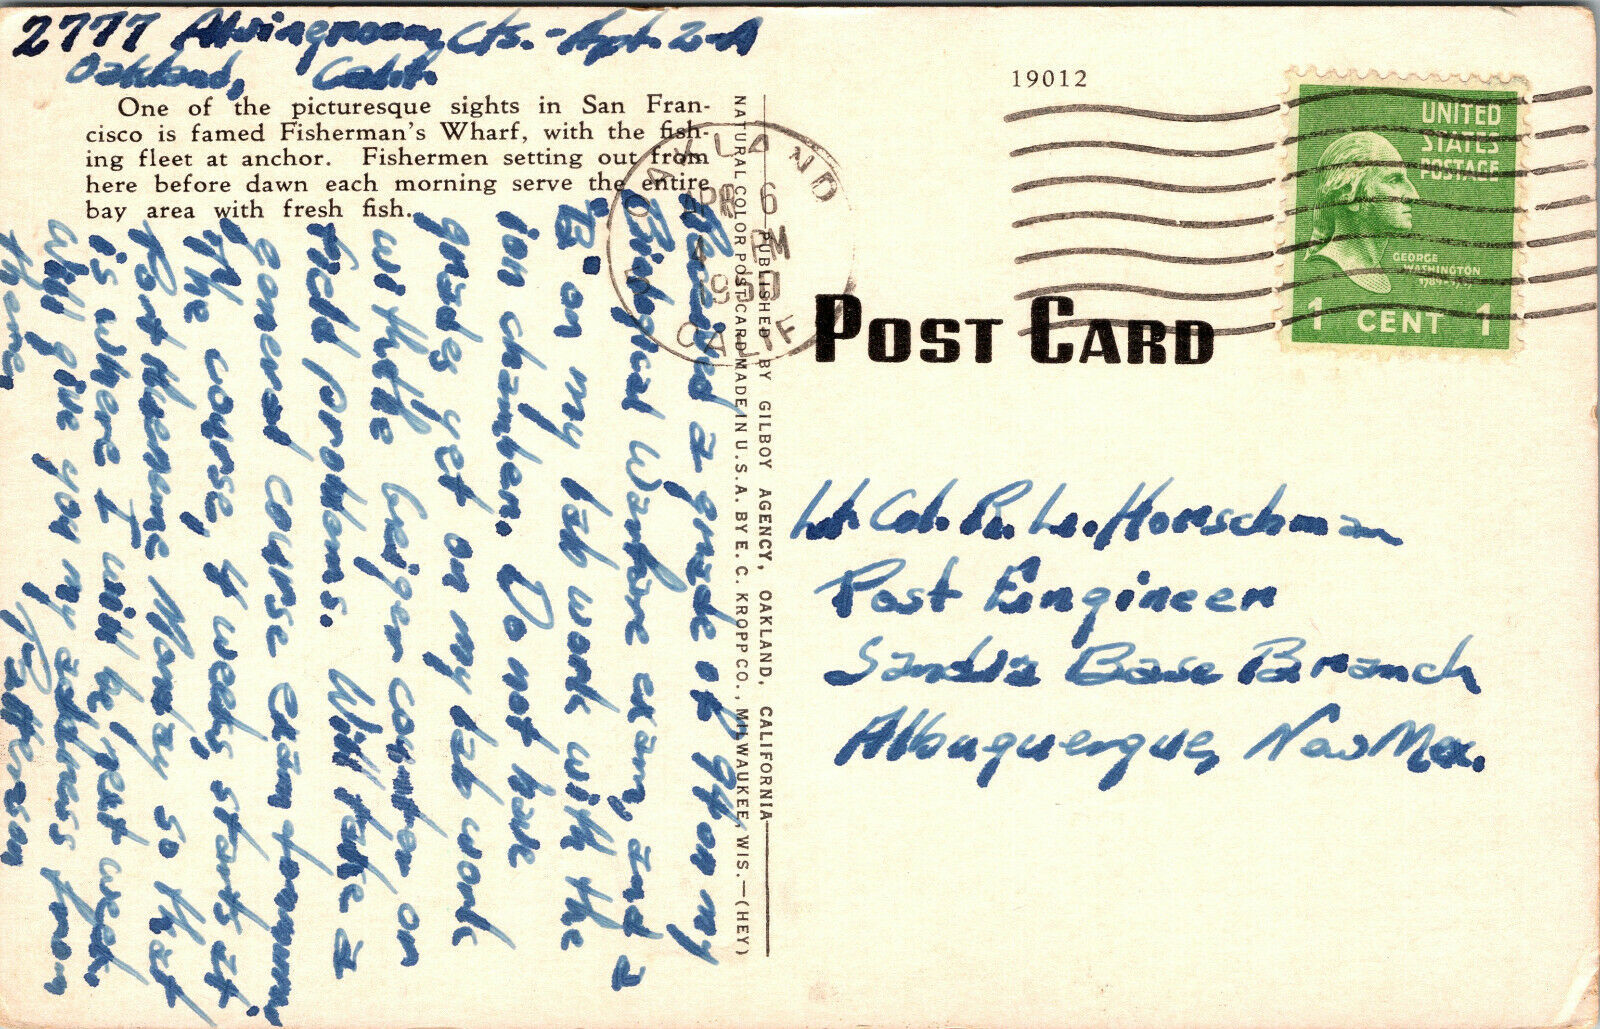 2777 Alvingroom Cts. - Apt. 2-A
Oakland, Calif.
One of the picturesque sights in San Fran-
cisco is famed Fisherman's Wharf, with the fish-
ing fleet at anchor. Fishermen setting out from
here before dawn each morning serve the entire
bay area with fresh fish.
Received a grade of 94 on my
Biological Warfare exam, and a
B on my lab work with the
ion chamber. Do not have
grades yet on my lab work
with the Geiger counter or
field problems. Will take a
general course exam tomorrow.
The course, 4 weeks, starts at
Fort Monday so that
is where I will be next week.
Will give you my address from
there.
Patterson
NATURAL COLOR POST CARD MADE IN U.S.A. BY E. C. KROPP CO., MILWAUKEE, WIS.—(HEY)
PUBLISHED BY GILBOY AGENCY, OAKLAND, CALIFORNIA
OAKLAND
APR 6
PM
1950
CALIF
19012
UNITED
STATES
POSTAGE
GEORGE
WASHINGTON
1789-1797
1 CENT 1
POST CARD
Lt. Col. R. L. Horschman
Post Engineer
Sandia Base Branch
Albuquerque, New Mex.